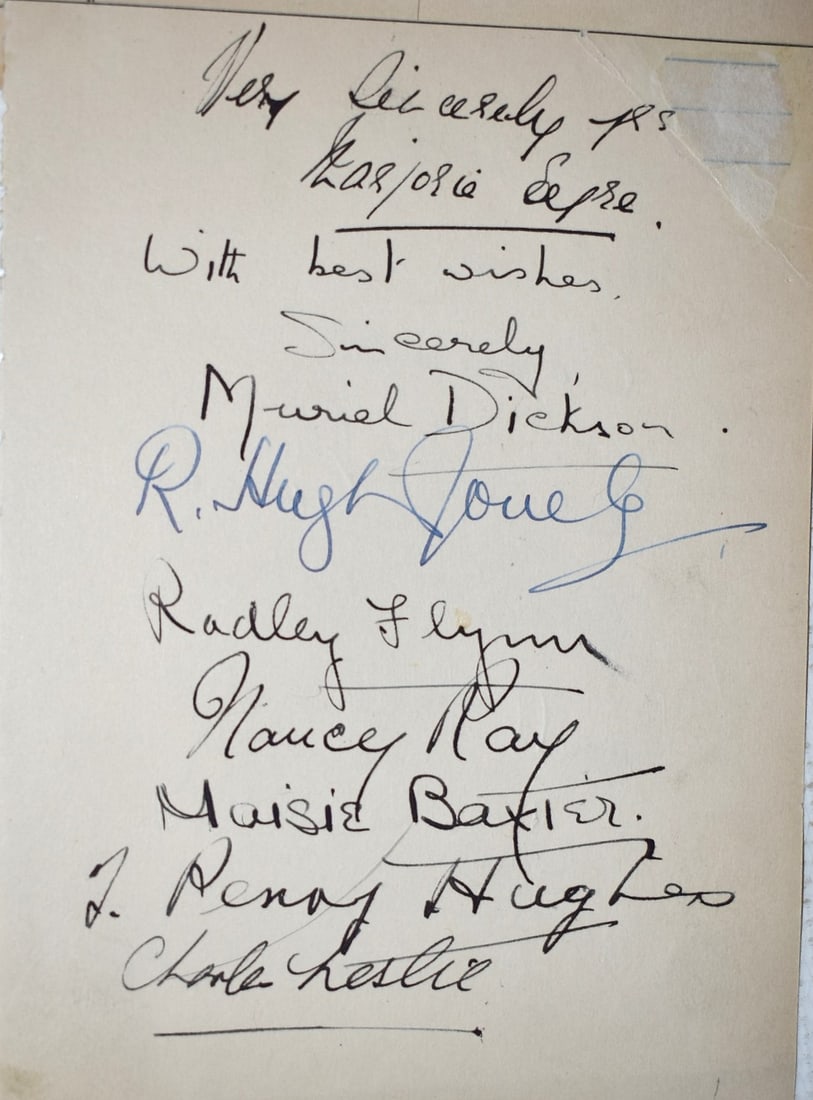 Very Sincerely yrs
Marjorie Eyre.
With best wishes.
Sincerely,
Muriel Dickson.
R. Hugh Jones
Radley Flynn
Nancy Ray
Maisie Baxter.
T. Penry Hughes
Charles Leslie